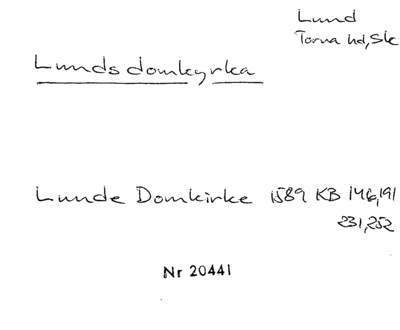 Lund
Torna hd, Sk
Lunds domkyrka
Lunde Domkirke 1589 KB 146, 191
231, 252
Nr 20441